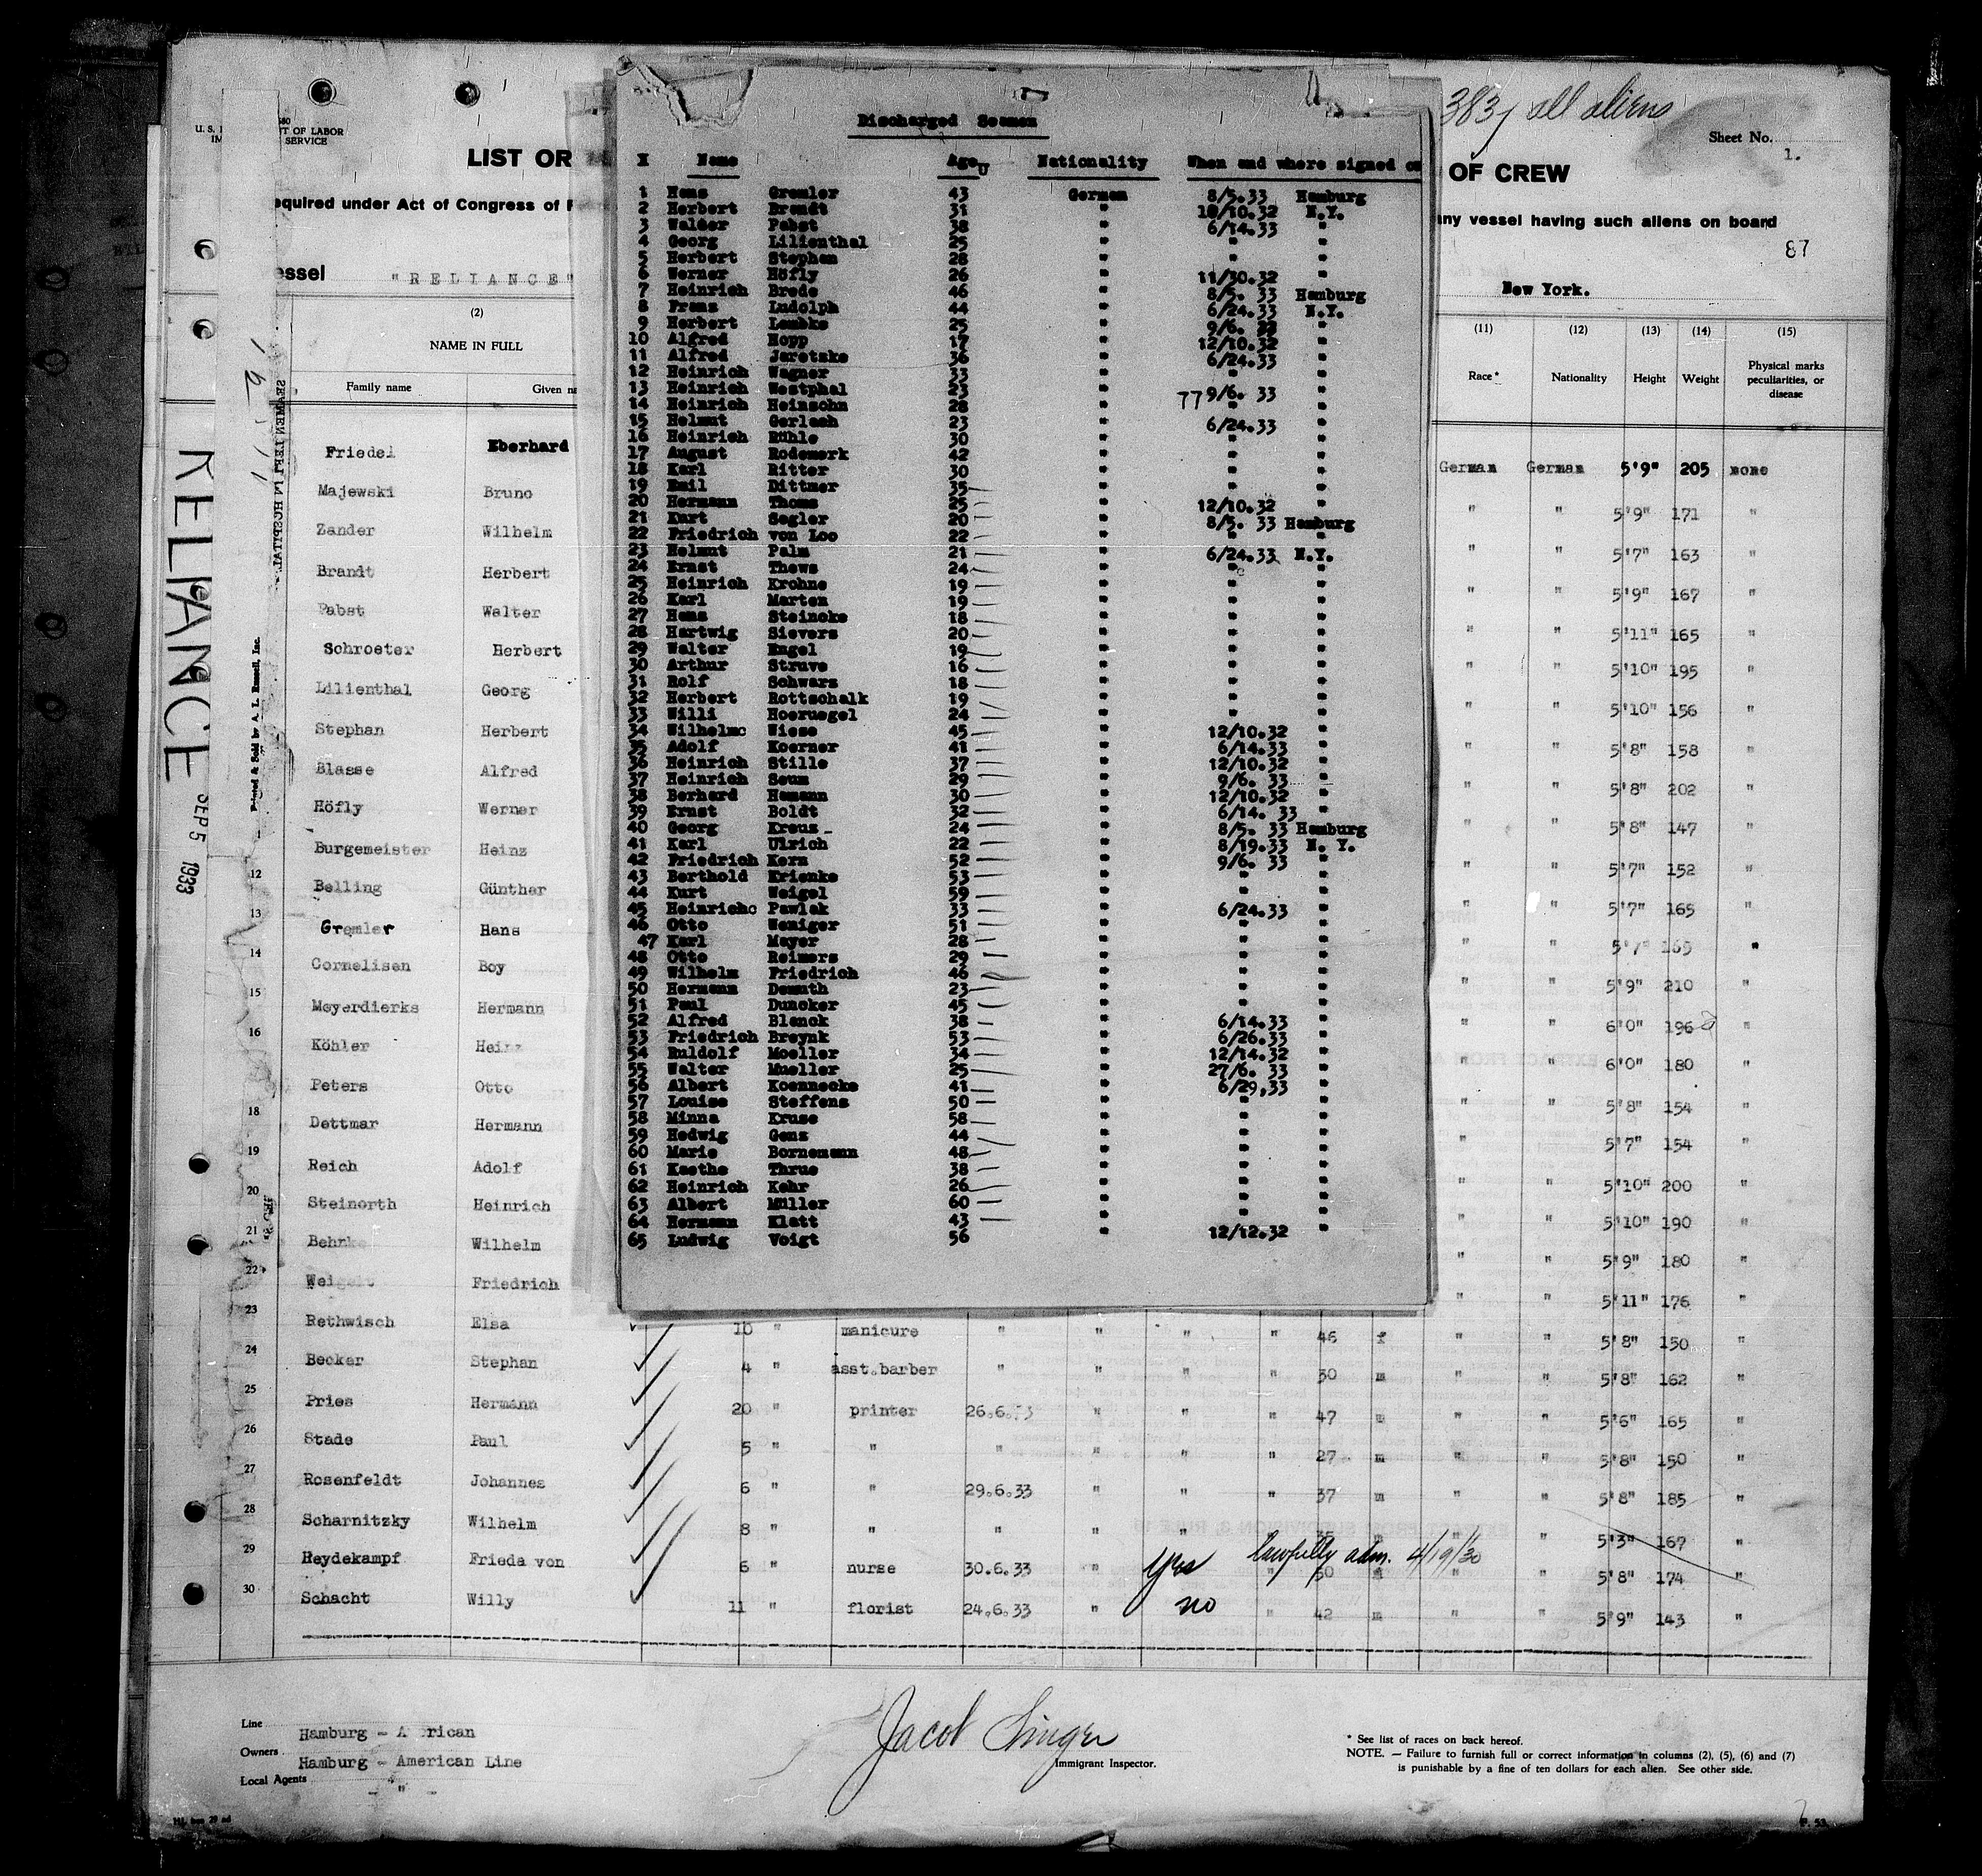 383, all aliens
Sheet No. 1.
U. S.
T OF LABOR
SERVICE
LIST OR
OF CREW
equired under Act of Congress of
any vessel having such aliens on board
87
essel "RELIANCE"
New York.
(2)
NAME IN FULL
Family name
Given na
(11) (12) (13) (14) (15)
Race* Nationality Height Weight Physical marks peculiarities, or disease
RELIANCE
SEP 5 1933
SEAMEN LEFT IN HOSPITAL
Printed & Sold by A. L. Russell, Inc.
Discharged Seamen
Name Age Nationality When and where signed on
1 Hans Gremler 43 German 8/5.33 Hamburg
2 Herbert Brandt 31 " 10/10.32 N.Y.
3 Walder Pabst 38 " 6/14.33 "
4 Georg Lilienthal 25 " " "
5 Herbert Stephan 28 " " "
6 Werner Höfly 26 " 11/30.32 "
7 Heinrich Brede 46 " 8/5. 33 Hamburg
8 Franz Ludolph 44 " 6/24.33 N.Y.
9 Herbert Lembke 25 " 9/6. 33 "
10 Alfred Hopp 17 " 12/10.32 "
11 Alfred Jaretzke 36 " 6/24.33 "
12 Heinrich Wagner 33 " " "
13 Heinrich Westphal 23 " 77 9/6. 33 "
14 Heinrich Heinsohn 28 " " "
15 Helmut Gerlach 23 " 6/24.33 "
16 Heinrich Rühle 30 " " "
17 August Rodemerk 42 " " "
18 Karl Ritter 30 " " "
19 Emil Dittmer 35 " " "
20 Hermann Thoms 25 " 12/10.32 "
21 Kurt Segler 20 " 8/5. 33 Hamburg
22 Friedrich von Loo 22 " " "
23 Helmut Palm 21 " 6/24.33 N.Y.
24 Ernst Thews 24 " " "
25 Heinrich Krohne 19 " " "
26 Karl Marten 19 " " "
27 Hans Steincke 18 " " "
28 Hartwig Sievers 20 " " "
29 Walter Engel 19 " " "
30 Arthur Struve 16 " " "
31 Rolf Schwarz 18 " " "
32 Herbert Rottschalk 19 " " "
33 Willi Hoeruegel 24 " " "
34 Wilhelmc Wiese 45 " 12/10.32 "
35 Adolf Koerner 41 " 6/14.33 "
36 Heinrich Stille 37 " 12/10.32 "
37 Heinrich Seum 29 " 9/6. 33 "
38 Berhard Hamann 30 " 12/10.32 "
39 Ernst Boldt 32 " 6/14. 33 "
40 Georg Kreuz 24 " 8/5. 33 Hamburg
41 Karl Ulrich 22 " 8/19.33 N. Y.
42 Friedrich Kern 52 " 9/6. 33 "
43 Berthold Krienke 53 " " "
44 Kurt Weigel 59 " " "
45 Heinrichc Pawlak 33 " 6/24.33 "
46 Otto Weniger 51 " " "
47 Karl Meyer 28 " " "
48 Otto Reimers 29 " " "
49 Wilhelm Friedrich 46 " " "
50 Hermann Demuth 23 " " "
51 Paul Duncker 45 " " "
52 Alfred Blenck 38 " 6/14.33 "
53 Friedrich Breynk 53 " 6/26.33 "
54 Ruldolf Moeller 34 " 12/14.32 "
55 Walter Mueller 25 " 27/6. 33 "
56 Albert Koennecke 41 " 6/29,33 "
57 Louise Steffens 50 " " "
58 Minna Kruse 58 " " "
59 Hedwig Genz 44 " " "
60 Marie Bornemann 48 " " "
61 Kaethe Thrue 38 " " "
62 Heinrich Kehr 26 " " "
63 Albert Müller 60 " " "
64 Hermann Klatt 43 " " "
65 Ludwig Voigt 56 " 12/12.32
Friedel Eberhard German German 5'9" 205 none
Majewski Bruno " " 5'9" 171 "
Zander Wilhelm " " 5'7" 163 "
Brandt Herbert " " 5'9" 167 "
Pabst Walter " " 5'11" 165 "
Schroeter Herbert " " 5'10" 195 "
Lilienthal Georg " " 5'10" 156 "
Stephan Herbert " " 5'8" 158 "
Blasse Alfred " " 5'8" 202 "
Höfly Werner " " 5'8" 147 "
Burgemeister Heinz " " 5'7" 152 "
12 Belling Günther " " 5'7" 165 "
13 Gremler Hans " " 5'7" 165 "
14 Cornelisen Boy " " 5'9" 210 "
15 Meyerdierks Hermann " " 6'0" 196 "
16 Köhler Heinz " " 6'0" 180 "
Peters Otto " " 5'8" 154 "
18 Dettmar Hermann " " 5'7" 154 "
19 Reich Adolf " " 5'10" 200 "
20 Steinorth Heinrich " " 5'10" 190 "
21 Behnke Wilhelm " " 5'9" 180 "
22 Weigelt Friedrich " " 5'11" 176 "
23 Rethwisch Elsa 10 " manicure " " " " 46 f " " 5'8" 150 "
24 Becker Stephan 4 " asst.barber " " " " 30 m " " 5'8" 162 "
25 Pries Hermann 20 " printer 26.6.33 " " " 47 m " " 5'6" 165 "
26 Stade Paul 5 " " " " " " 27 m " " 5'8" 150 "
27 Rosenfeldt Johannes 6 " " 29.6.33 " " " 37 m " " 5'8" 185 "
28 Scharnitzky Wilhelm 8 " " " " " " 35 m " " 5'3" 167 "
29 Heydekampf Frieda von 6 " nurse 30.6.33 " yes lawfully adm. 4/19/30 50 f " " 5'8" 174 "
30 Schacht Willy 11 " florist 24.6.33 " no " 42 m " " 5'9" 143 "
Line Hamburg - A rican
Owners Hamburg - American Line
Local Agents - " -
Jacob Singer
Immigrant Inspector.
* See list of races on back hereof.
NOTE. — Failure to furnish full or correct information in columns (2), (5), (6) and (7)
is punishable by a fine of ten dollars for each alien. See other side.